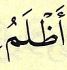 أَظْلَمُ